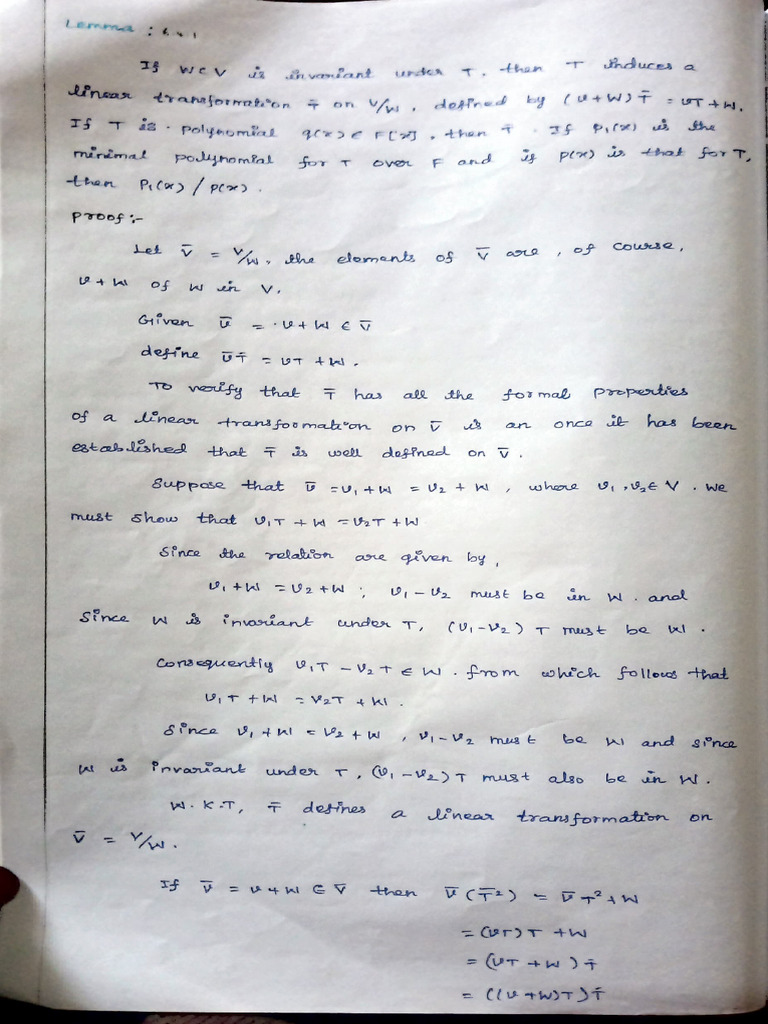 Lemma : 6.4.1
If W⊂V is invariant under T, then T induces a
linear transformation T̄ on V/W, defined by (v+W)T̄ = vT+W.
If T is polynomial q(x)∈F[x], then T̄. If p₁(x) is the
minimal polynomial for T over F and if p(x) is that for T,
then p₁(x) / p(x).
Proof:-
Let V̄ = V/W, the elements of V̄ are, of course,
v+W of W in V.
Given v̄ = v+W ∈ V̄
define v̄T̄ = vT + W.
To verify that T̄ has all the formal properties
of a linear transformation on V̄ is an once it has been
established that T̄ is well defined on V̄.
Suppose that v̄ = v₁+W = v₂+W, where v₁,v₂∈V. We
must show that v₁T+W = v₂T+W
Since the relation are given by,
v₁+W = v₂+W ; v₁-v₂ must be in W. and
Since W is invariant under T, (v₁-v₂)T must be W.
Consequently v₁T - v₂T ∈ W. from which follows that
v₁T+W = v₂T+W.
Since v₁+W = v₂+W, v₁-v₂ must be W and since
W is invariant under T, (v₁-v₂)T must also be in W.
W.K.T, T̄ defines a linear transformation on
V̄ = V/W.
If v̄ = v+W ∈ V̄ then v̄(T̄²) = v̄T²+W
= (vT)T + W
= (vT+W)T̄
= ((v+W)T)T̄